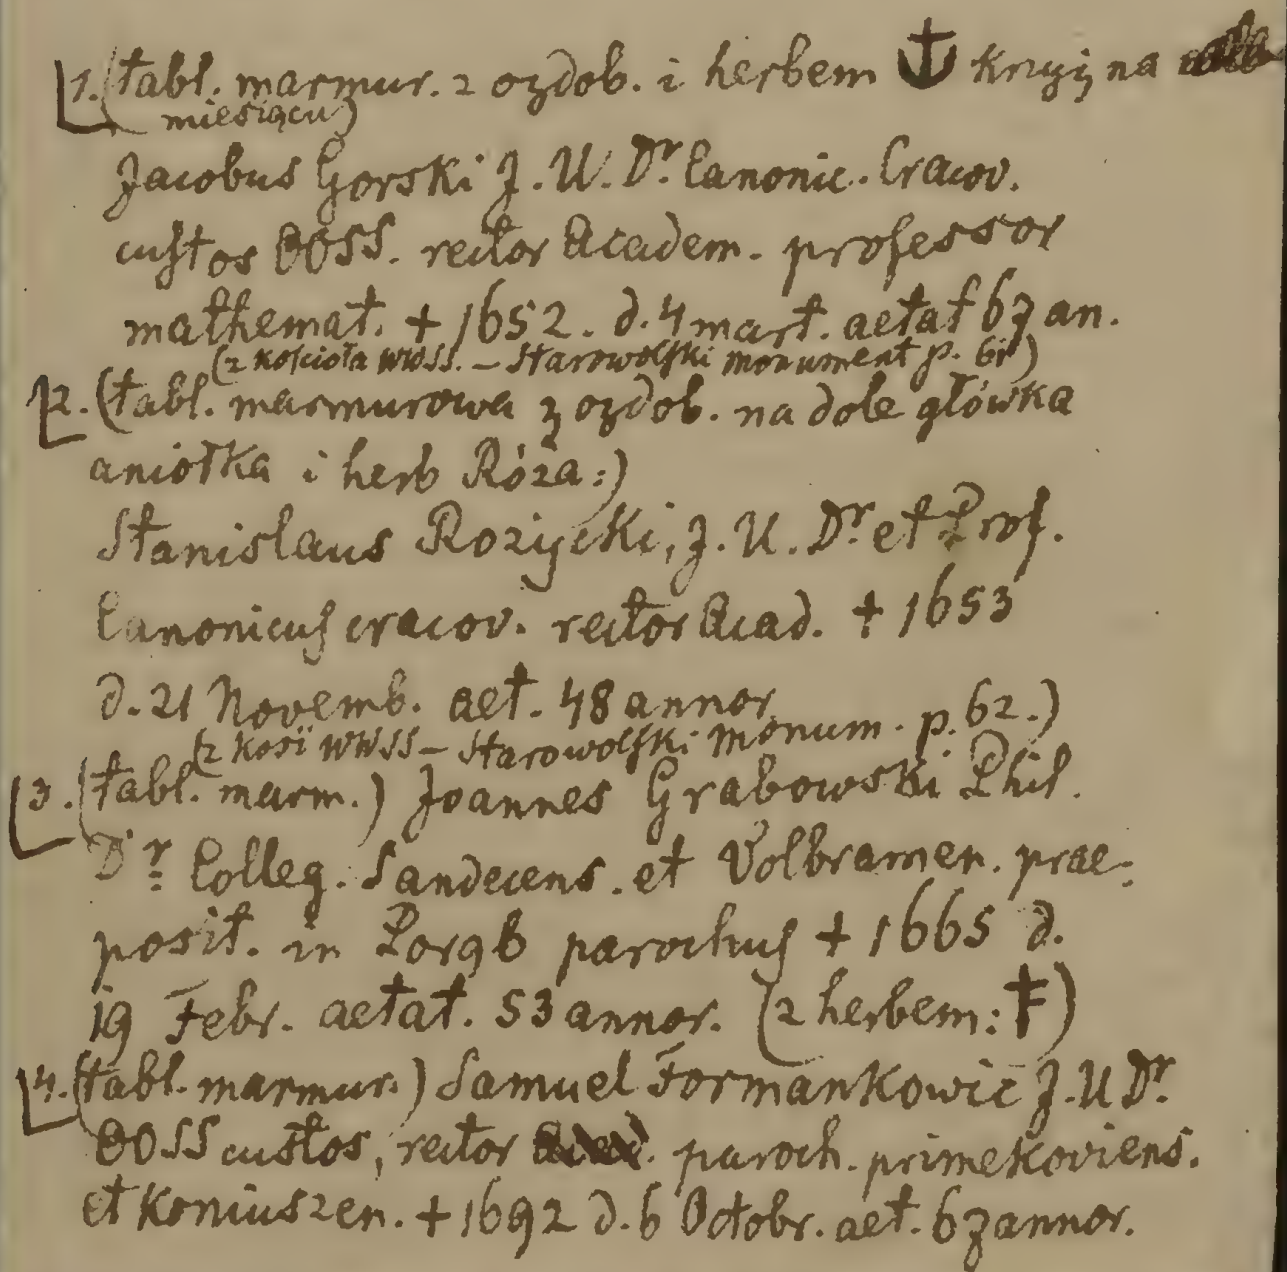 1. (tabl. marmur. z ozdob. i herbem krzyż na
miesiącu)
Jacobus Gorski J. U. Dr. Canonic. Cracov.
custos OOSS. rector Academ. professor
mathemat. + 1652. d. 4 mart. aetat 67 an.
(z kościoła WWSS. – Starowolski monument p. 61)
2. (tabl. marmurowa z ozdob. na dole główka
aniołka i herb Róża:)
Stanislaus Rozycki, J. U. Dr et Prof.
Canonicus cracov. rector Acad. + 1653
d. 21 Novemb. aet. 48 annor.
(z kość WWSS – Starowolski monum. p. 62.)
3. (tabl. marm.) Joannes Grabowski Phil.
Dr. Colleg. Sandecens. et Volbramen. prae-
posit. in Porąb parochus + 1665 d.
19 Febr. aetat. 53 annor. (z herbem: ‡)
4. (tabl. marmur.) Samuel Formankowic J. U Dr.
OOSS custos, rector paroch. primekoviens.
et Koniuszen. + 1692 d. 6 Octobr. aet. 67 annor.